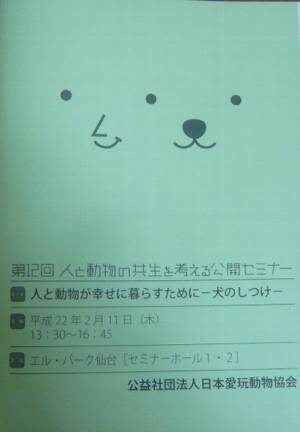 第12回 人と動物の共生を考える公開セミナー
人と動物が幸せに暮らすために－犬のしつけ－
平成22年2月11日（木）
13：30～16：45
エル・パーク仙台［セミナーホール1・2］
公益社団法人日本愛玩動物協会